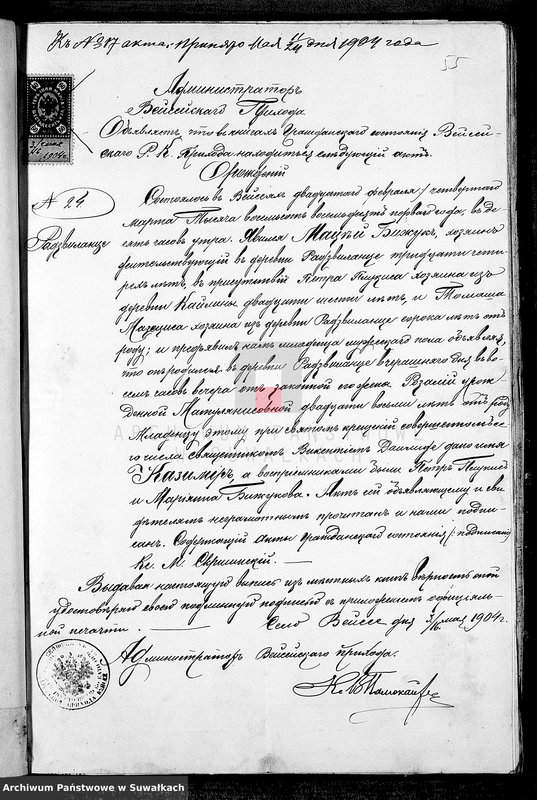 Къ № 317 акта, принято Мая 11/24 дня 1904 года
55
Администраторъ
Вейсейскаго Прихода
Объявляетъ что въ книгахъ Гражданскаго состоянія Вейсей-
скаго Р. К. Прихода находится слѣдующій актъ
О рожденіи
3/16 мая
1904 г.
№ 24.
Радзвиланце
Состоялось въ Вейсеяхъ двадцатаго февраля / четвертаго
марта Тысяча восемьсотъ восемьдесятъ перваго года, въ де-
сять часовъ утра. Явился Мацѣй Бижукъ, хозяинъ
жительствующій въ деревни Радзвиланце тридцати четы-
рехъ лѣтъ, въ присутствіи Петра хозяина изъ
деревни двадцати шести лѣтъ, и Томаша
хозяина изъ деревни Радзвиланце сорока лѣтъ отъ
роду; и предъявилъ намъ младенца мужескаго пола объявляя,
что онъ родился въ деревни Радзвиланце вчерашняго дня въ во-
семь часовъ вечера отъ законной его жены Розаліи урож-
донной двадцати восьми лѣтъ отъ роду
Младенцу этому при святомъ крещеніи совершенномъ се-
го числа священникомъ Викентіемъ дано имя
Казимиръ, а воспріемниками были Петръ
и Маріянна Бижукова. Актъ сей объявляющему и сви-
дѣтелямъ неграмотнымъ прочитанъ и нами подпи-
санъ. Содержащій акты гражданскаго состоянія /: подписано
Кс. М.
Выдавая настоящую выпись изъ метрическихъ книгъ вѣрность оной
удостовѣряю своей подлинной подписью съ приложеніемъ оффиціаль-
ной печати. Село Вейсее дня 3/16 мая 1904 г.
Администраторъ Вейсейскаго прихода.
ARCHIWUM PAŃSTWOWE
W SUWAŁKACH
Archiwum Państwowe w Suwałkach